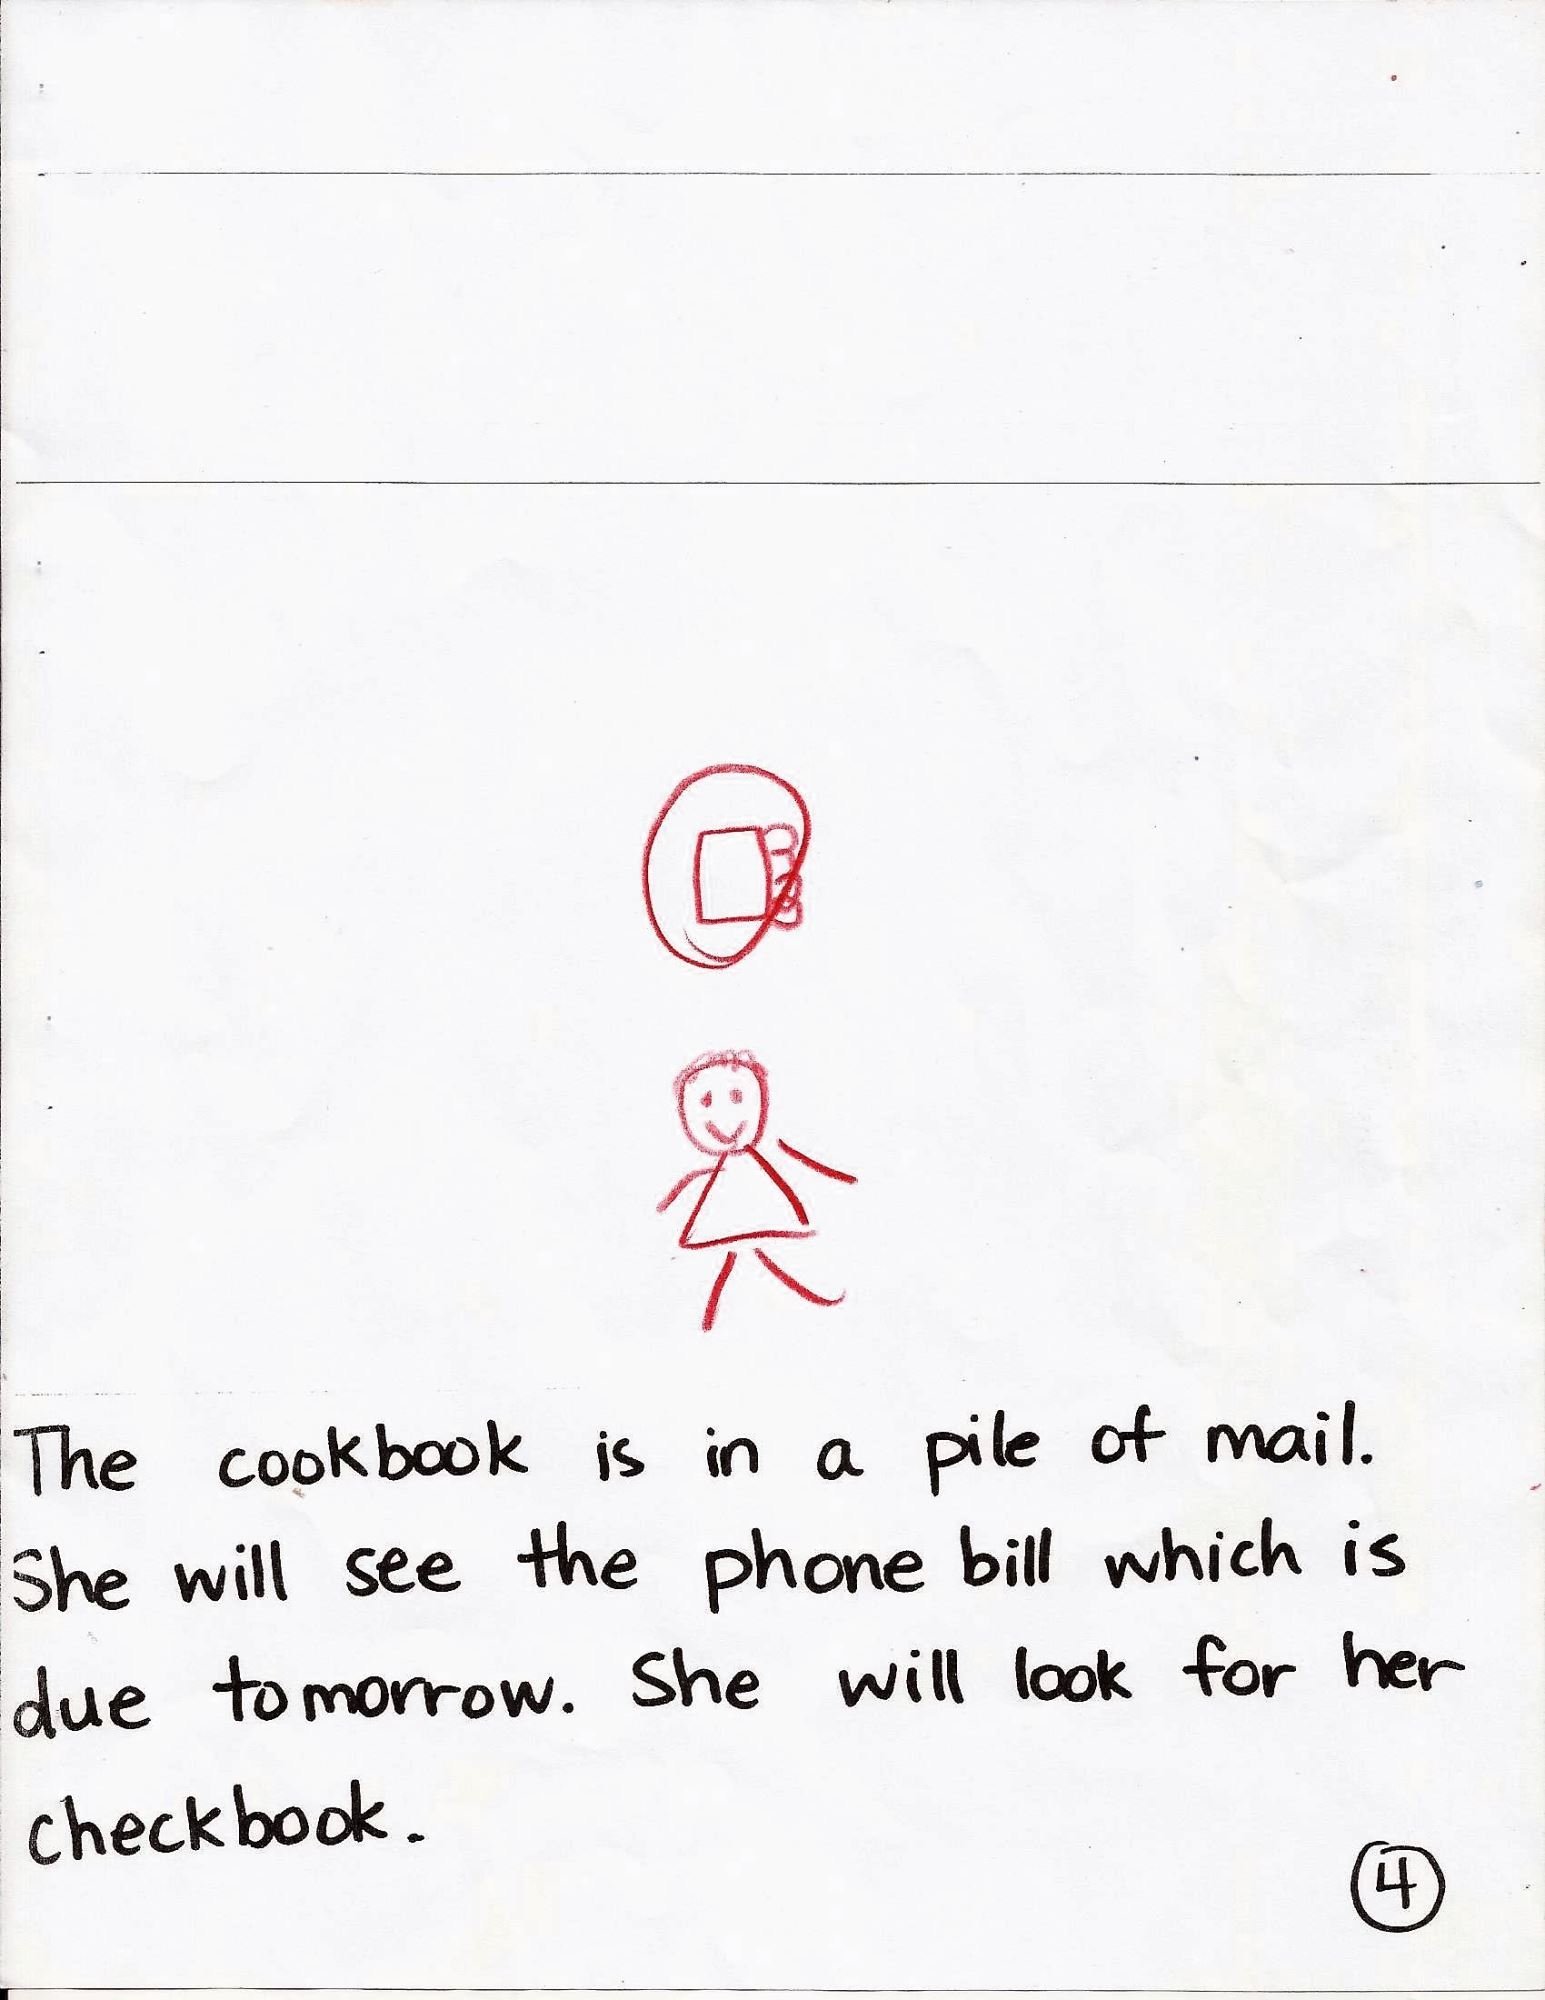 The cookbook is in a pile of mail.
She will see the phone bill which is
due tomorrow. She will look for her
checkbook.
4